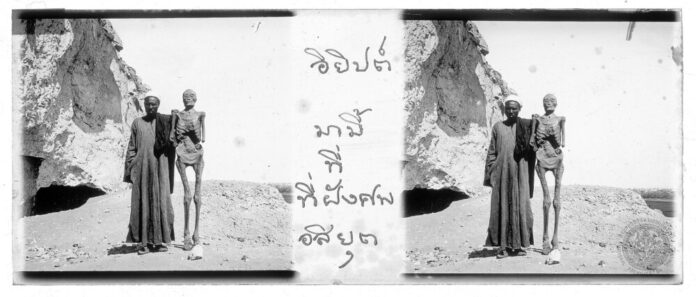 อิยิปต์
ที่
ที่ฝังศพ
อสิยุต